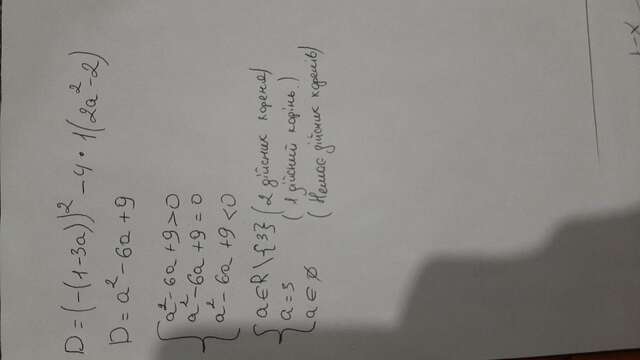 D = (-(1-3a))² - 4 · 1(2a² - 2)
D = a² - 6a + 9
{ a² - 6a + 9 > 0
a² - 6a + 9 = 0
a² - 6a + 9 < 0
{ a ∈ R \ {3} (2 дійсних кореня)
a = 3 (1 дійсний корінь.)
a ∈ ∅ (Немає дійсних коренів)
1-x